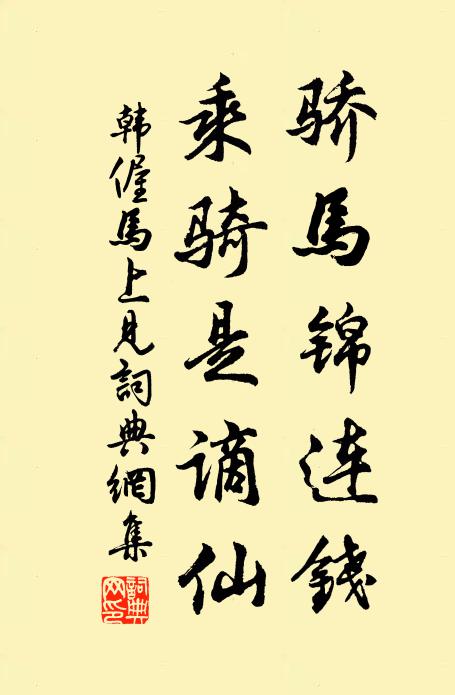 骄馬锦连錢
乘骑是谪仙
韩偓馬上見詞典網集
詞典网印